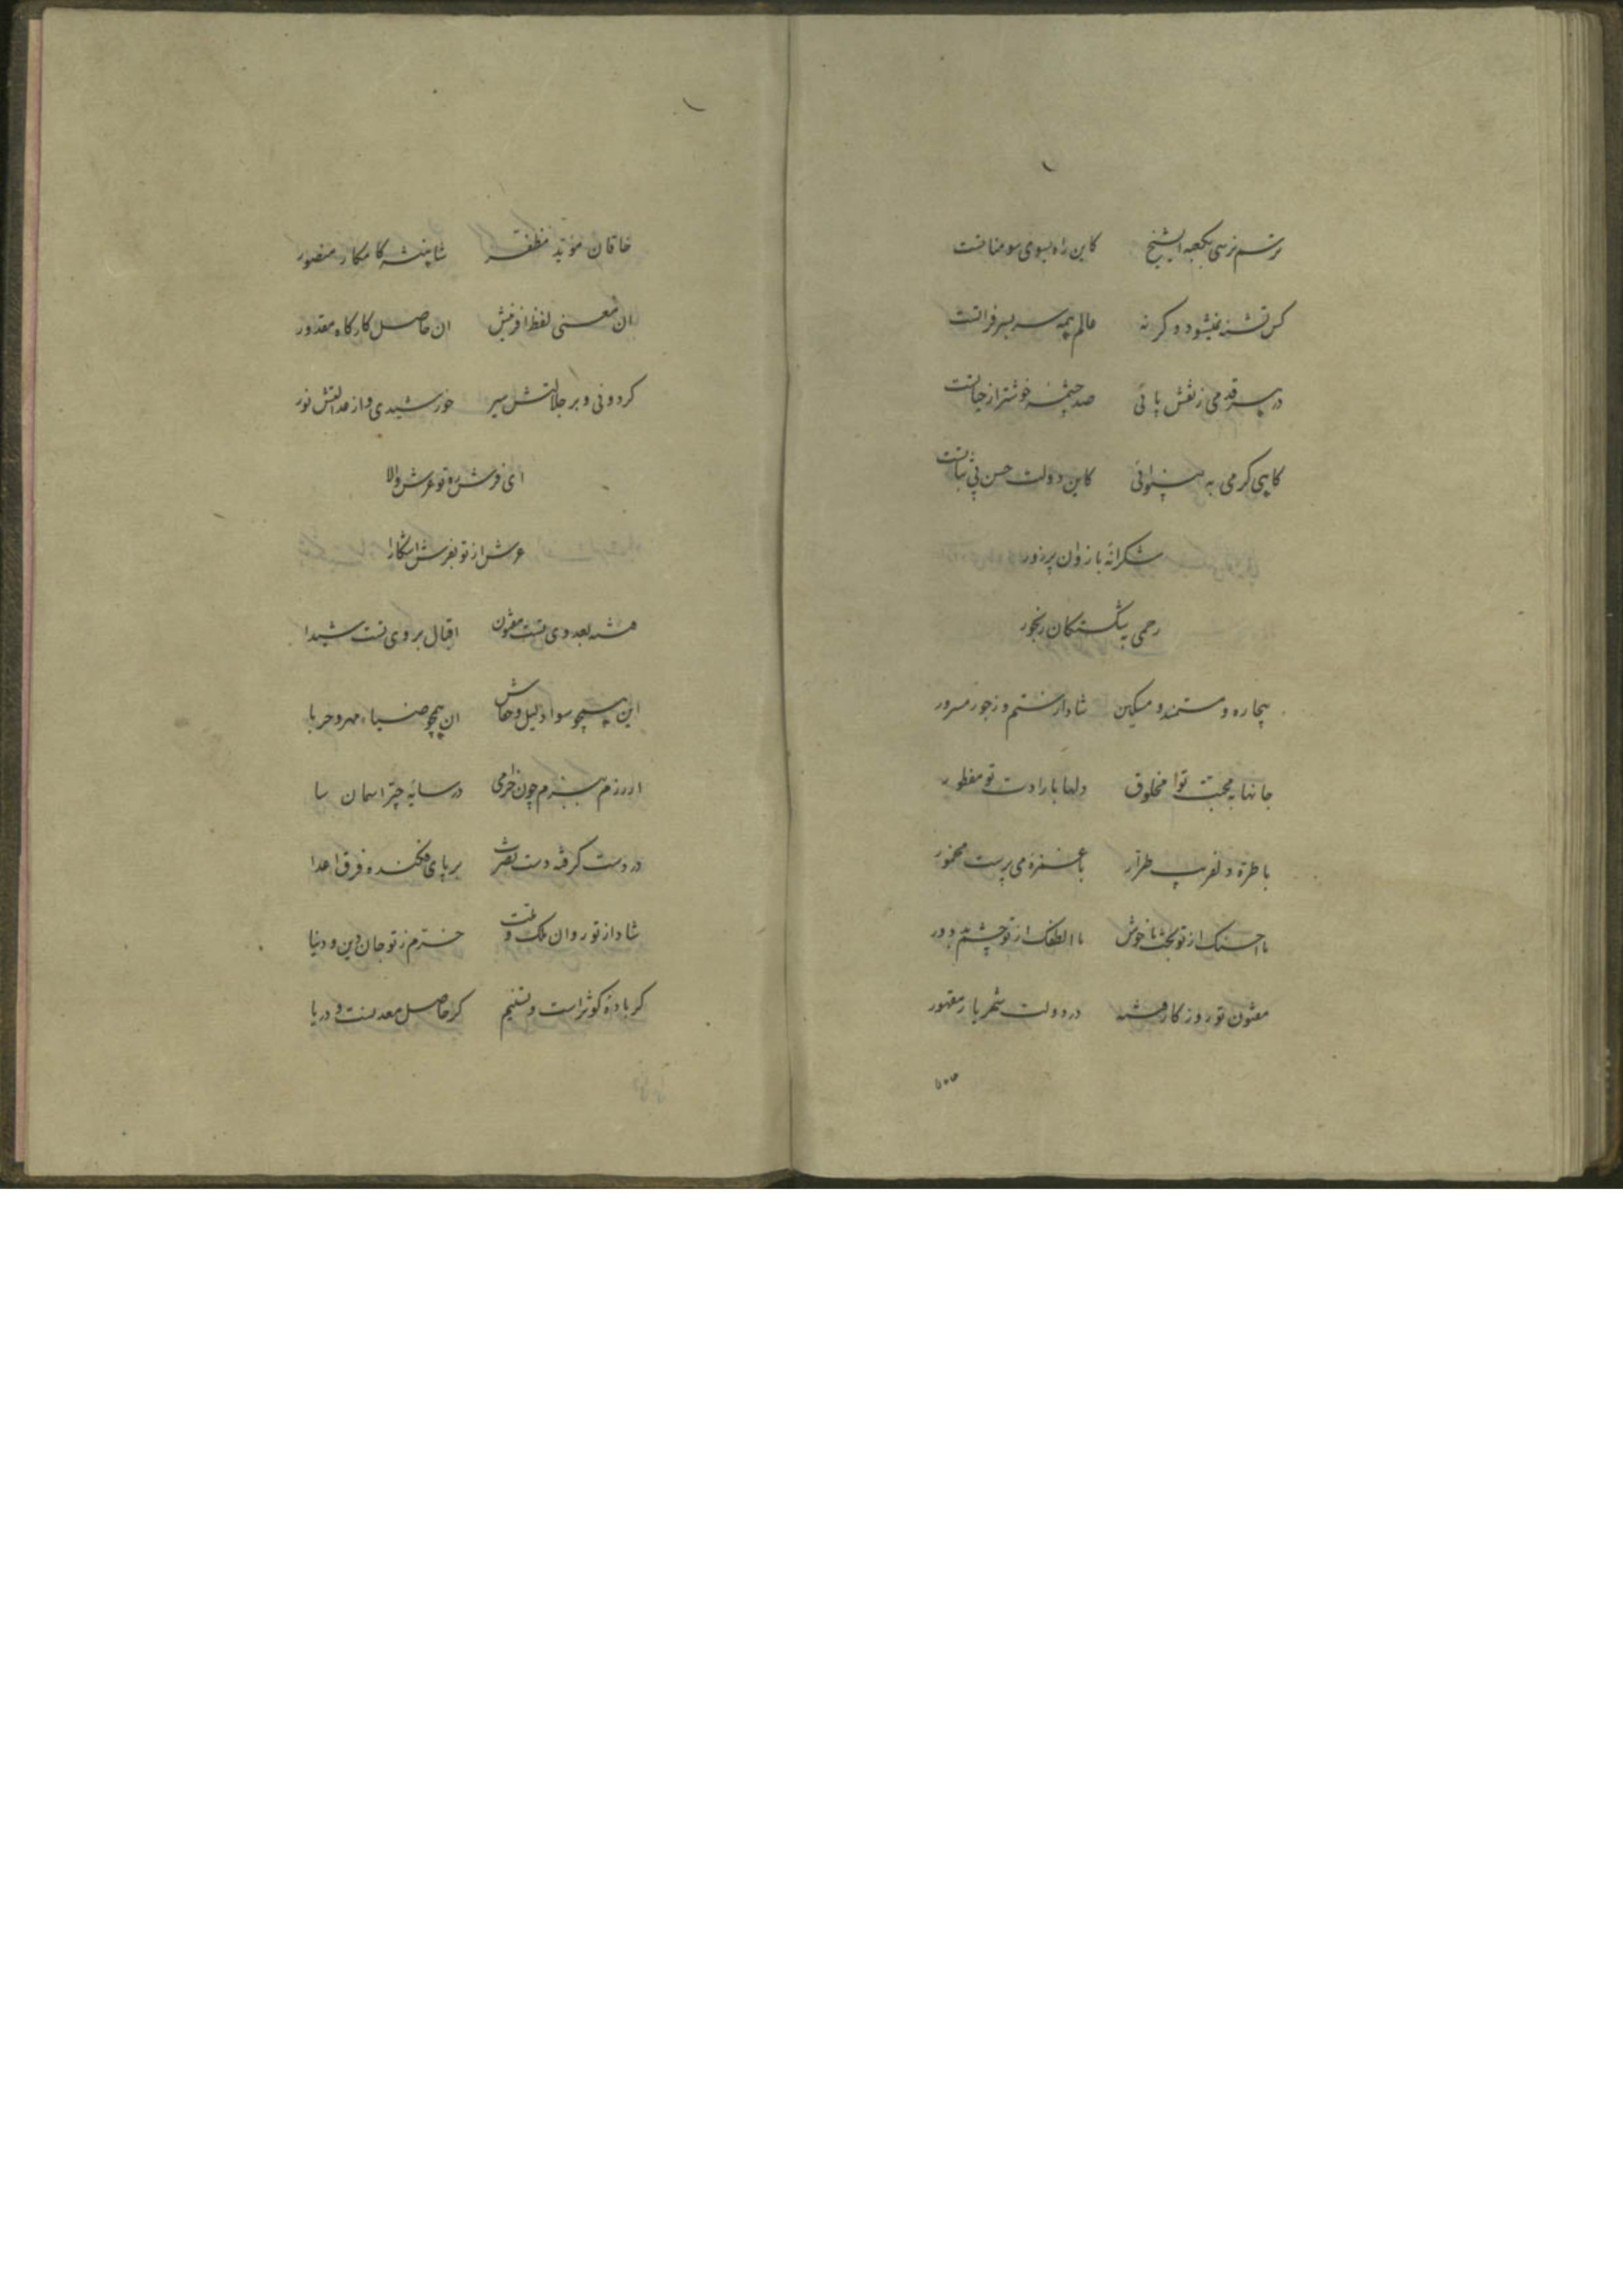 ترسم نرسی بکعبه ایشیخ کاین راه بسوی سومناتست
کس تشنه نمیشود و کر نه عالم همه سر بسر فراتست
در هر قدمی ز نقش پائی صد چشمه خوشتر از حیاتست
کاهی کرمی به بینوائی کاین دولت حسن بی ثباتست
شکرانه بازوان پرزور
رحمی بشکستکان رنجور
بیچاره و مستمند و مسکین شاد از ستم و ز جور مسرور
جانها بمحبت تو مخلوق دلها بارادت تو مفطور
با طره دلفریب طرار با غمزه می پرست مخمور
ما احسنک از تو بخت ما خوش ما الطفک از تو چشم بد دور
مفتون تو روزکار فتنه در دولت شهریار مقهور
خاقان مؤید مظفر شاهنشه کامکار منصور
ان معنی لفظ افرینش ان حاصل کارکاه مقدور
کردونی و بر جلالتش سیر خورشیدی و از عدالتش نور
ای فرش ره تو عرش والا
عرش از تو بفرش اشکارا
فتنه بعدوی تست مفتون اقبال بروی تست شیدا
این همچو سواد لیل و خفاش ان همچو ضیاء مهر و حربا
از رزم ببزم چون خرامی در سایه چتر اسمان سا
در دست کرفته دست نصرت بر پای فکنده فرق اعدا
شاد از تو روان ملک و ملت خرم ز تو جان دین و دنیا
کر باده کوثر است و تسنیم کر حاصل معدنست و دریا